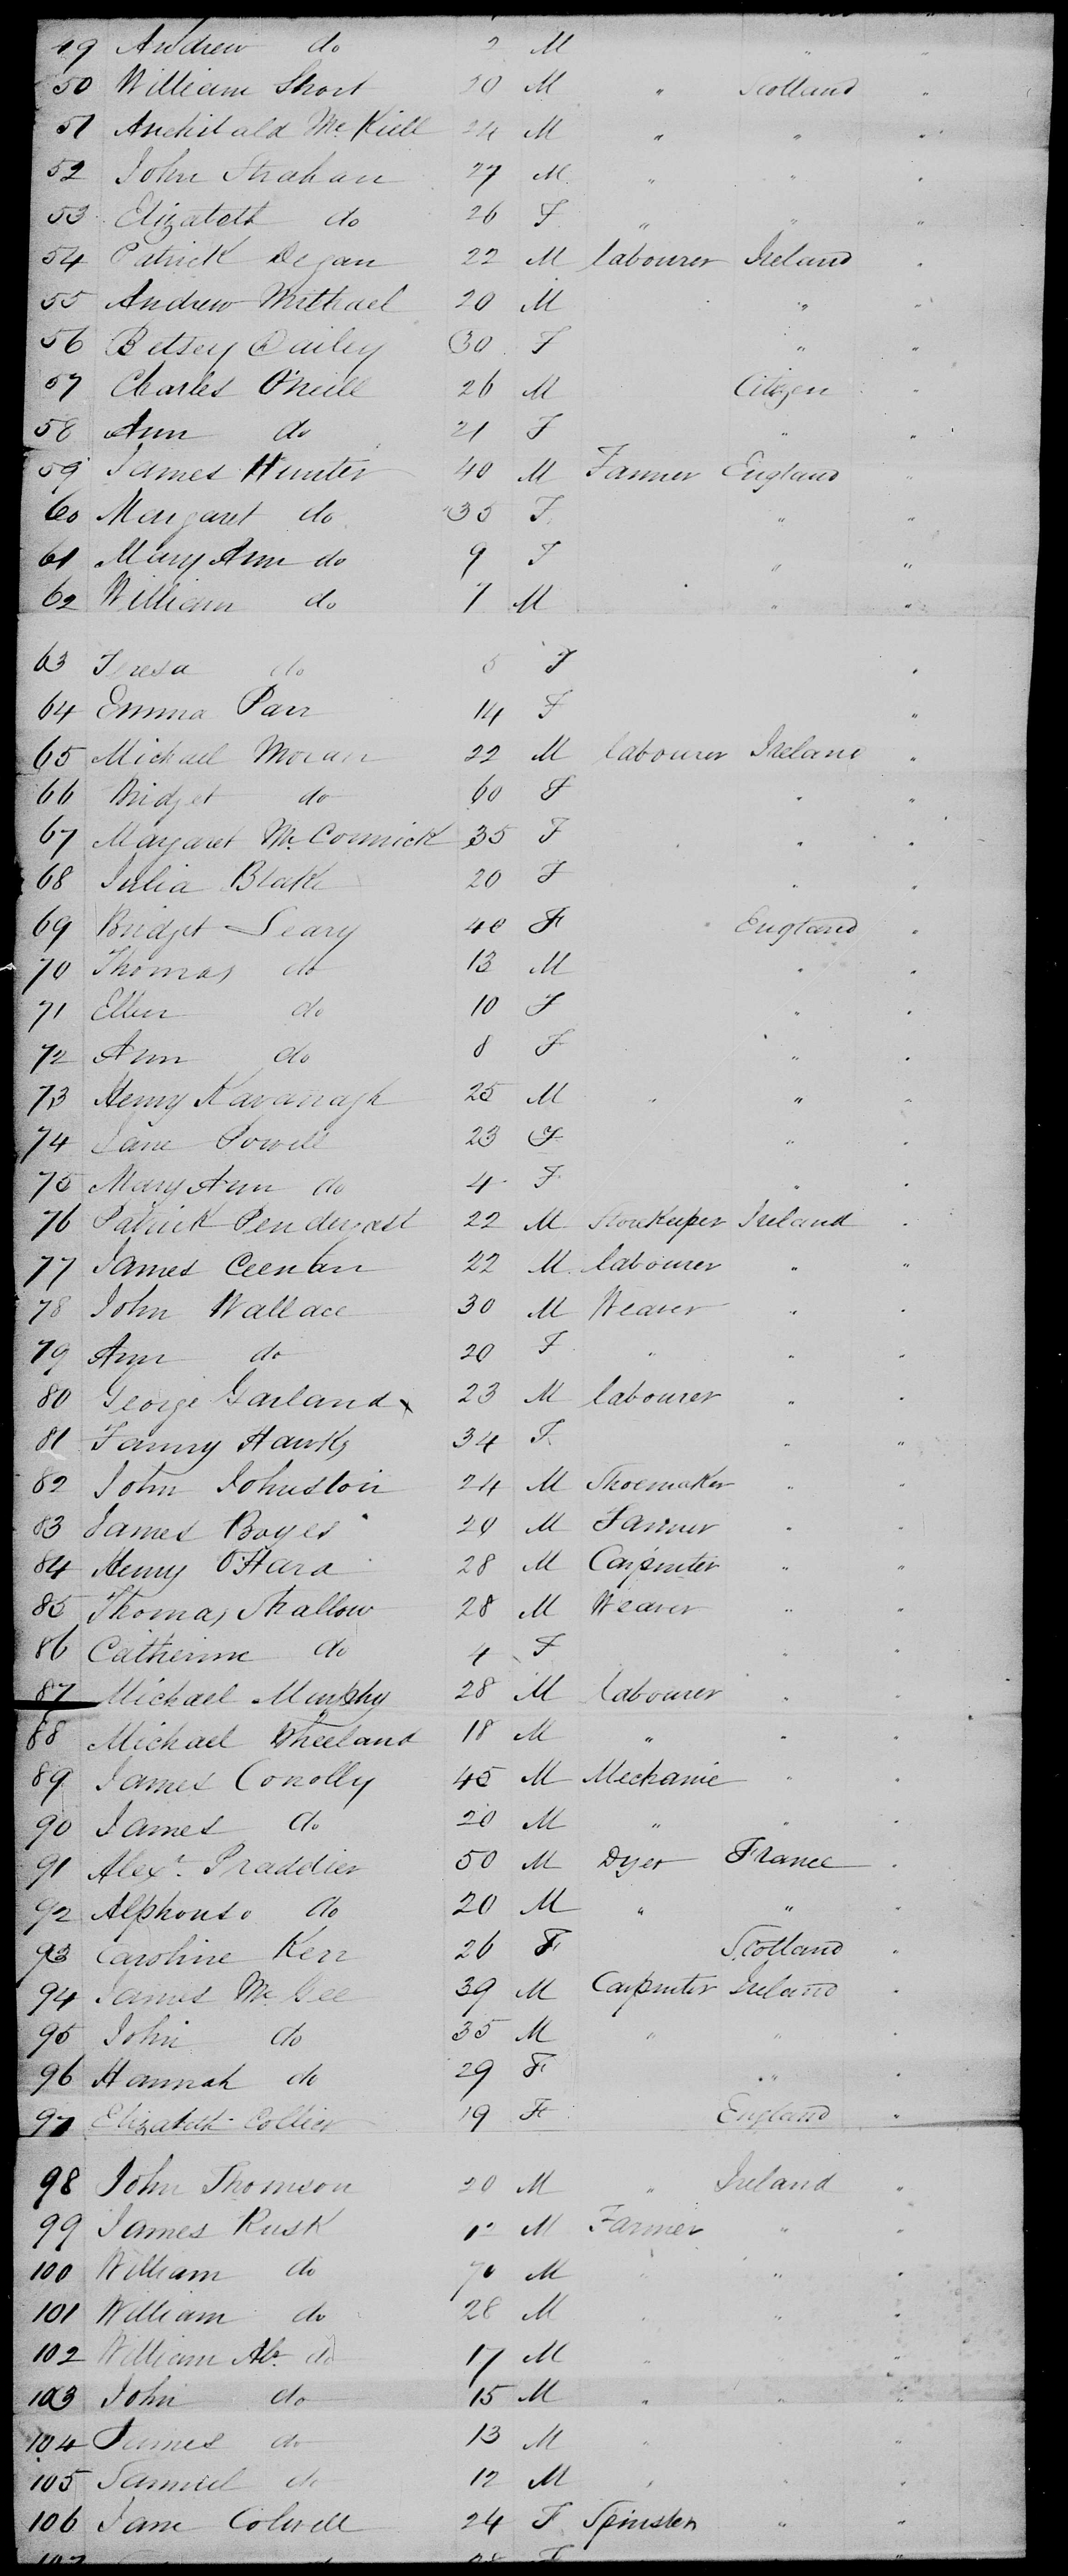 49 Andrew do 2 M "
50 William Short 30 M " Scotland "
51 Archibald McKiell 24 M " " "
52 John Strahan 27 M " " "
53 Elizabeth do 26 F " " "
54 Patrick Degan 22 M labourer Ireland "
55 Andrew Michael 20 M " "
56 Betsey Dailey 30 F " "
57 Charles O'Neill 26 M Citizen "
58 Ann do 21 F " "
59 James Hunter 40 M Farmer England "
60 Margaret do 35 F " "
61 Mary Ann do 9 F " "
62 William do 7 M " "
63 Teresa do 5 F "
64 Emma Parr 14 F "
65 Michael Moran 22 M labourer Ireland "
66 Bridget do 60 F " "
67 Margaret McCormick 35 F " "
68 Julia Blake 20 F " "
69 Bridget Leary 40 F England "
70 Thomas do 13 M " "
71 Ellen do 10 F " "
72 Ann do 8 F " "
73 Henry Kavanagh 25 M " " "
74 Jane Powell 23 F " "
75 Mary Ann do 4 F " "
76 Patrick Pendergast 22 M Storekeeper Ireland "
77 James Ceenan 22 M labourer " "
78 John Wallace 30 M Weaver " "
79 Ann do 20 F " " "
80 George Garland 23 M labourer " "
81 Fanny Hawks 34 F " "
82 John Johnston 24 M Shoemaker " "
83 James Boyes 20 M Farmer " "
84 Henry O'Hara 28 M Carpenter " "
85 Thomas Shallow 28 M Weaver " "
86 Catherine do 4 F " "
87 Michael Murphy 28 M labourer " "
88 Michael Wheeland 18 M " " "
89 James Conolly 45 M Mechanic " "
90 James do 20 M " " "
91 Alexr. Praddier 50 M Dyer France "
92 Alphonso do 20 M " " "
93 Caroline Kerr 26 F Scotland "
94 James McGee 39 M Carpenter Ireland "
95 John do 35 M " " "
96 Hannah do 29 F " "
97 Elizabeth Collier 19 F England "
98 John Thomson 20 M " Ireland "
99 James Rusk M Farmer " "
100 William do 70 M " " "
101 William do 28 M " " "
102 William Alr. do 17 M " "
103 John do 15 M " " "
104 James do 13 M " "
105 Samuel do 12 M " " "
106 Jane Colwell 24 F Spinster " "